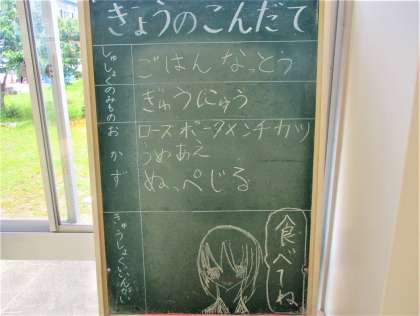 きょうのこんだて
しゅしょく
ごはん なっとう
のみもの
ぎゅうにゅう
おかず
ロースポークメンチカツ
うめあえ
ぬっぺじる
きゅうしょくいいんかい
食べてね